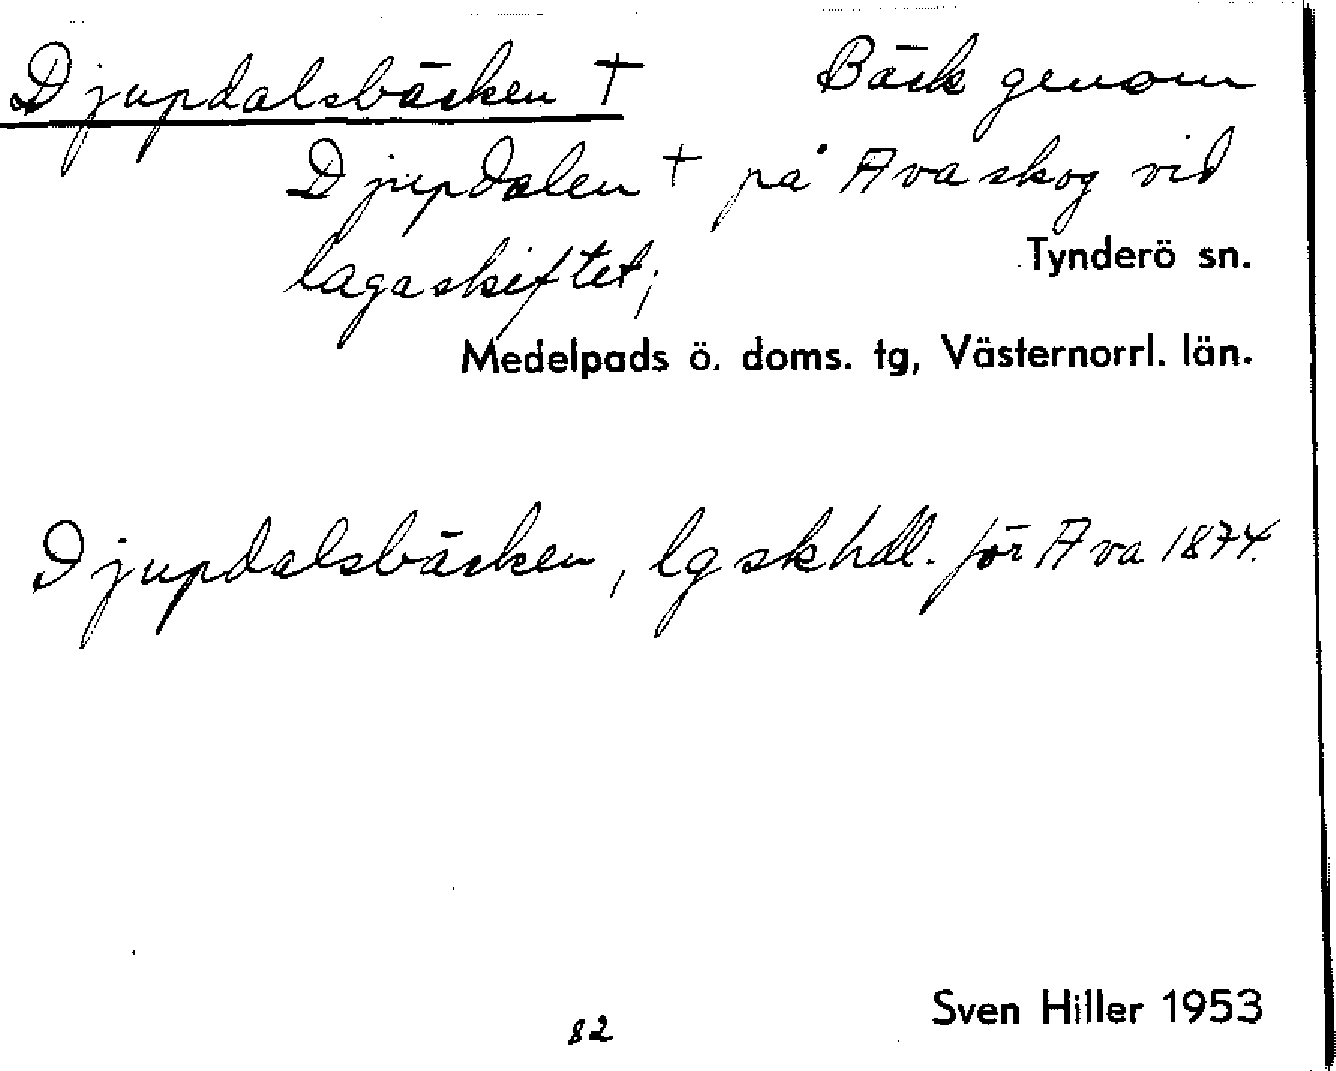 Djupdalsbäcken † Bäck genom
Djupdalen † på Ava skog vid
lagaskiftet;
Tynderö sn.
Medelpads ö. doms. tg, Västernorrl. län.
Djupdalsbäcken, lgskhdl. för Ava 1874.
82
Sven Hiller 1953